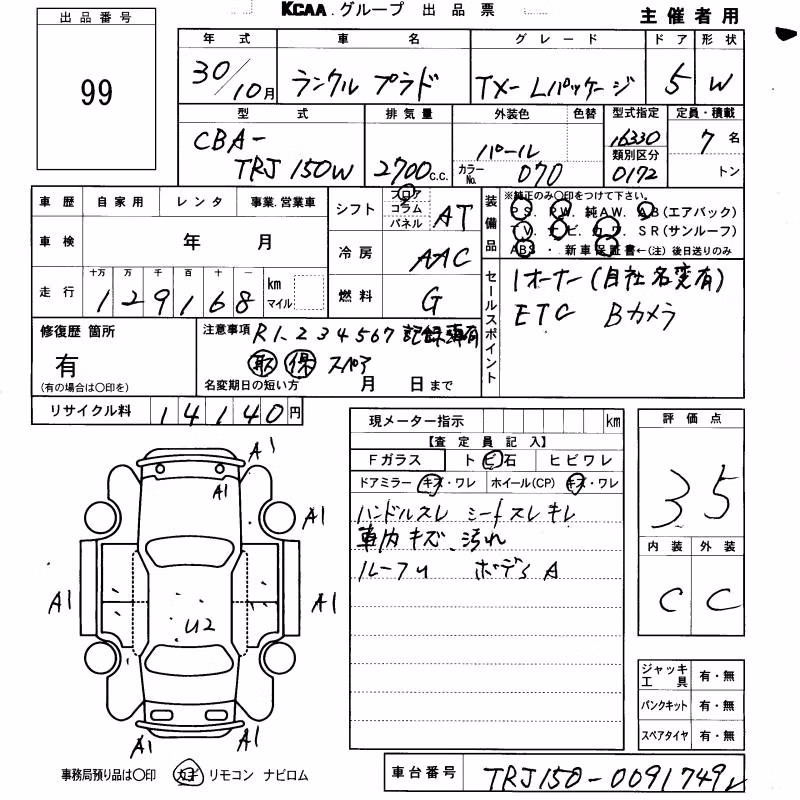 KCAA.グループ 出品票
主催者用
出品番号
99
年式 車名 グレード ドア 形状
30/10月 ランクル プラド TX-Lパッケージ 5 W
型式 排気量 外装色 色替 型式指定 定員・積載
CBA-
TRJ150W 2700c.c. パール カラーNo. 070 16330 7名
類別区分 0172 トン
車歴 自家用 レンタ 事業.営業車
車検 年 月
走行 十万 万 千 百 十 一
129168 km マイル
シフト フロア コラム パネル AT
冷房 AAC
燃料 G
装備品 ※純正のみ〇印をつけて下さい。
PS. PW. 純AW. AB(エアバック)
TV. ナビ. カワ. SR(サンルーフ)
ABS ・ 新車保証書←(注) 後日送りのみ
セールスポイント
1オーナー(自社名変有)
ETC Bカメラ
修復歴 箇所
有
(有の場合は〇印を)
注意事項 R1.234567 記録簿有
取 保 スペア
名変期日の短い方 月 日まで
リサイクル料 14140円
現メーター指示 km
【査定員記入】
Fガラス トビ石 ヒビワレ
ドアミラー キズ・ワレ ホイール(CP) キズ・ワレ
ハンドルスレ シートスレ キレ
車内キズ、汚れ
ルーフU ボディA
評価点
3.5
内装 外装
C C
A1
A1
A1 A1
A1 A1
U2
A1 A1
ジャッキ工具 有・無
パンクキット 有・無
スペアタイヤ 有・無
事務局預り品は〇印 カギ リモコン ナビロム
車台番号 TRJ150-0091749